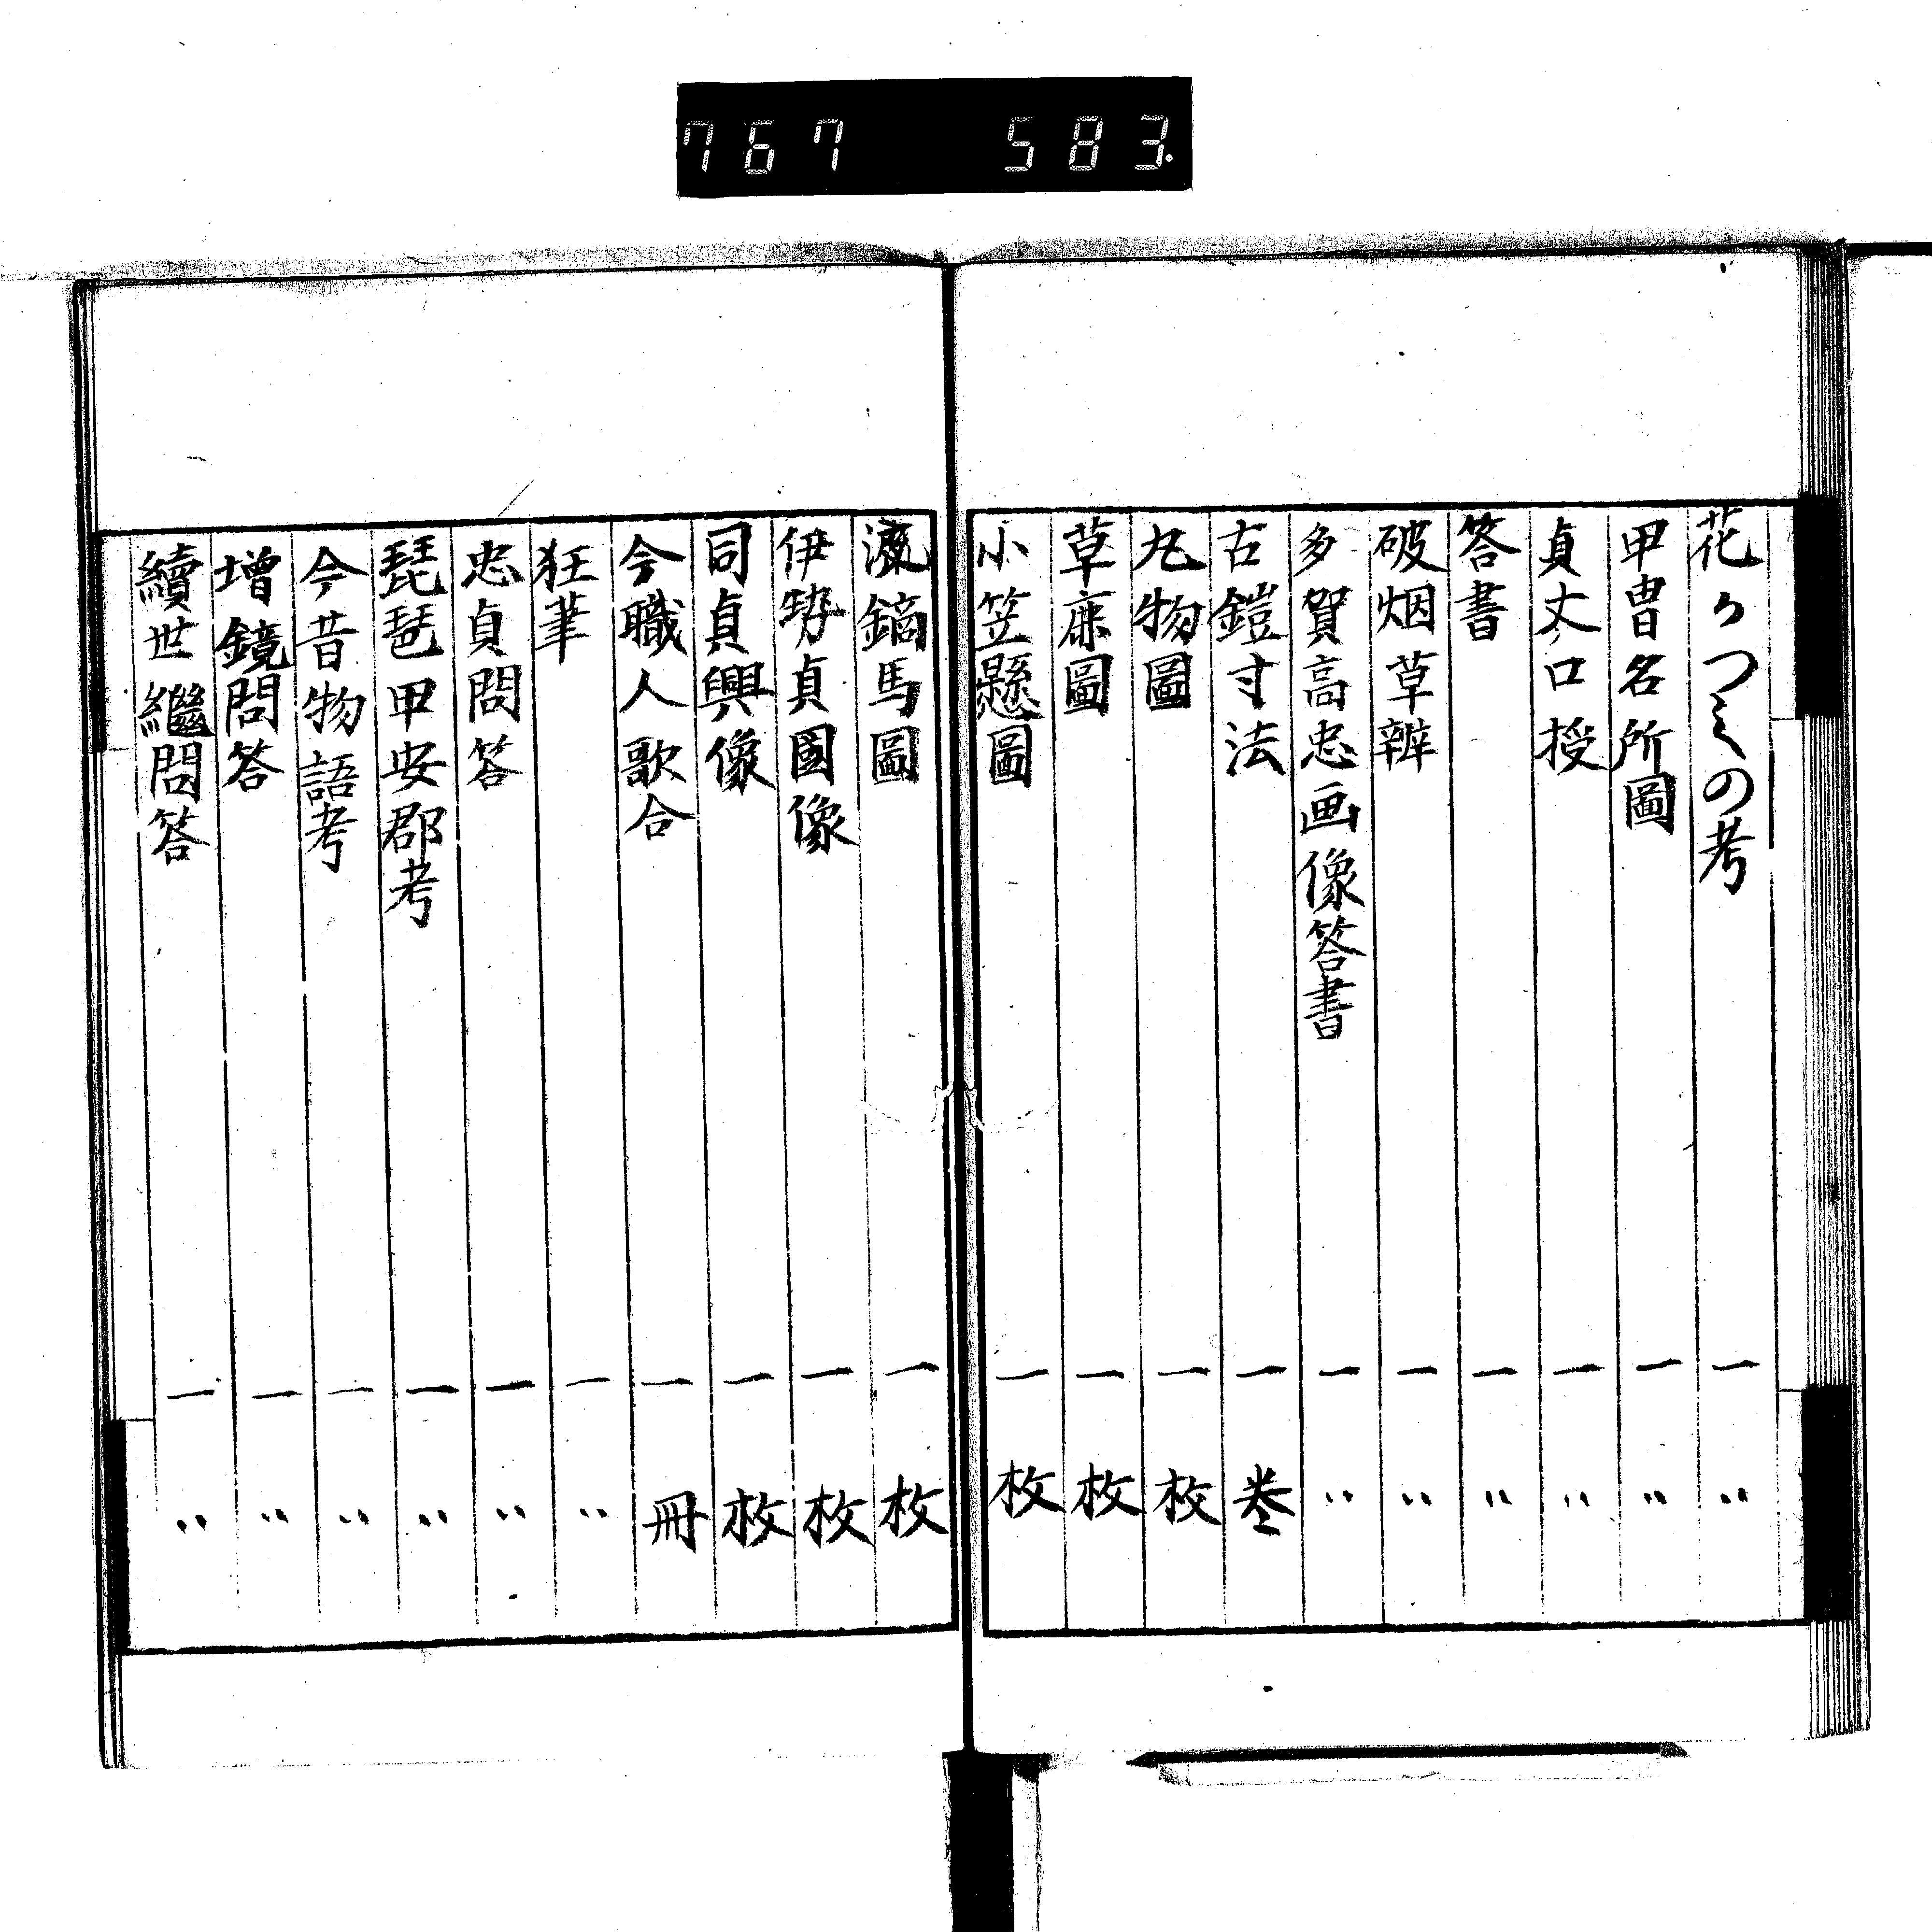 767 583.
花かつみの考 一 〃
甲冑名所圖 一 〃
貞丈口授 一 〃
答書 一 〃
破烟草辨 一 〃
多賀高忠画像答書 一 〃
古鎧寸法 一 巻
丸物圖 一 枚
草鹿圖 一 枚
小笠懸圖 一 枚
流鏑馬圖 一 枚
伊勢貞国像 一 枚
同貞興像 一 枚
今職人歌合 一 冊
狂筆 一 〃
忠貞問答 一 〃
琵琶甲安郡考 一 〃
今昔物語考 一 〃
增鏡問答 一 〃
續世繼問答 一 〃